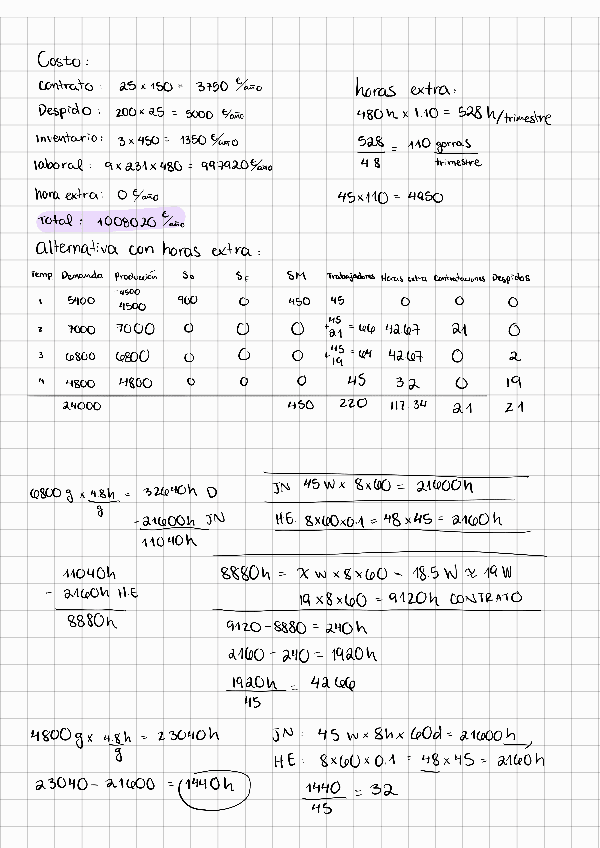 Costo:
Contrato: 25 x 150 = 3750 €/año
Despido: 200 x 25 = 5000 €/año
Inventario: 3 x 450 = 1350 €/año
laboral: 9 x 231 x 480 = 997920 €/año
hora extra: 0 €/año
Total: 1008020 €/año
horas extra:
480h x 1.10 = 528 h/trimestre
528/48 = 110 gorras/trimestre
45 x 110 = 4950
Alternativa con horas extra:
Temp Demanda Producción So SF SM Trabajadores Horas extra Contrataciones Despidos
1 5400 4500 4500 900 0 450 45 0 0 0
2 7000 7000 0 0 0 45 + 21 = 66 4267 21 0
3 6800 6800 0 0 0 45 + 19 = 64 4267 0 2
4 4800 4800 0 0 0 45 32 0 19
24000 450 220 117.34 21 21
6800 g x 4.8h/g = 32640h D
- 21600h JN
11040h
JN 45 W x 8 x 60 = 21600h
HE. 8x60x0.1 = 48 x 45 = 2160h
11040h
- 2160h H.E
8880h
8880h = x w x 8 x 60 - 18.5 W ≈ 19 W
19 x 8 x 60 = 9120h CONTRATO
9120 - 8880 = 240h
2160 - 240 = 1920h
1920h/45 = 4266
4800g x 4.8h/g = 23040h
23040 - 21600 = 1440h
JN: 45 w x 8h x 60d = 21600h
HE: 8x60x0.1 = 48 x 45 = 2160h
1440/45 = 32